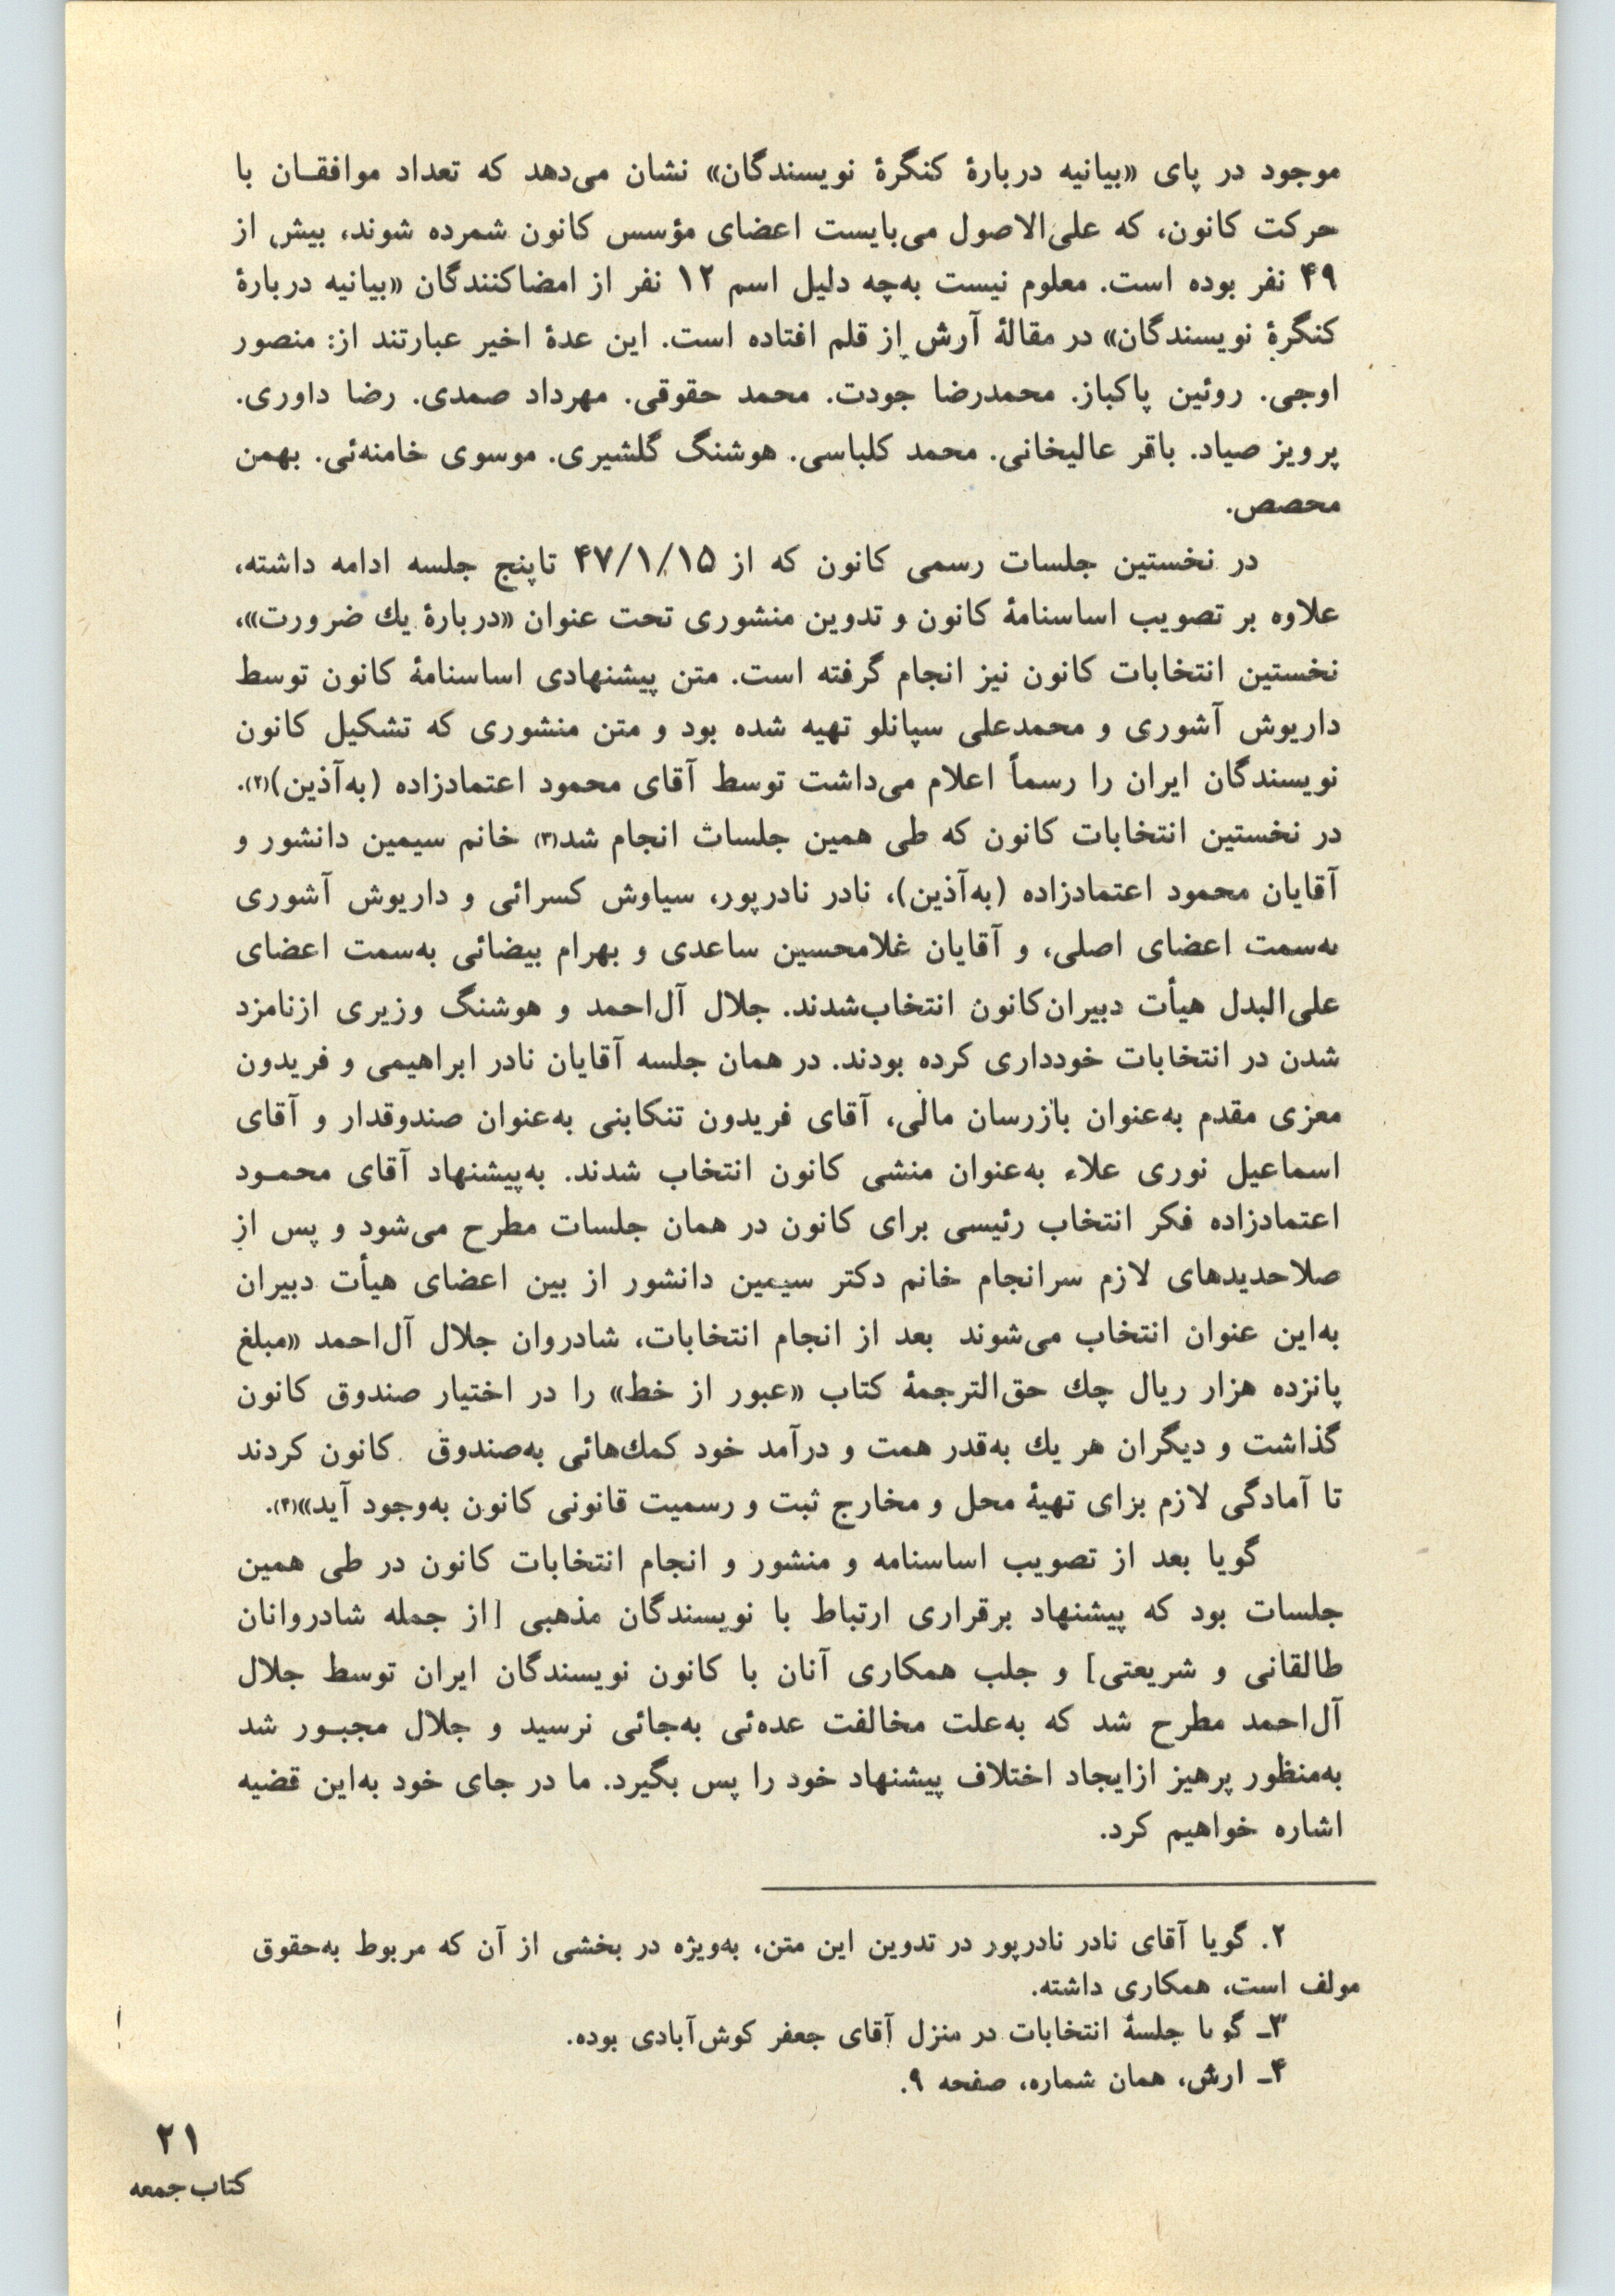 موجود در پای «بیانیه دربارهٔ کنگرهٔ نویسندگان» نشان می‌دهد که تعداد موافقـان با
حرکت کانون، که علی‌الاصول می‌بایست اعضای مؤسس کانون شمرده شوند، بیش از
۴۹ نفر بوده است. معلوم نیست به‌چه دلیل اسم ۱۲ نفر از امضاکنندگان «بیانیه دربارهٔ
کنگرهٔ نویسندگان» در مقالهٔ آرش از قلم افتاده است. این عدهٔ اخیر عبارتند از: منصور
اوجی. روئین پاکباز. محمدرضا جودت. محمد حقوقی. مهرداد صمدی. رضا داوری.
پرویز صیاد. باقر عالیخانی. محمد کلباسی. هوشنگ گلشیری. موسوی خامنه‌ئی. بهمن
محصص.
در نخستین جلسات رسمی کانون که از ۴۷/۱/۱۵ تاپنج جلسه ادامه داشته،
علاوه بر تصویب اساسنامهٔ کانون و تدوین منشوری تحت عنوان «دربارهٔ یك ضرورت»،
نخستین انتخابات کانون نیز انجام گرفته است. متن پیشنهادی اساسنامهٔ کانون توسط
داریوش آشوری و محمدعلی سپانلو تهیه شده بود و متن منشوری که تشکیل کانون
نویسندگان ایران را رسماً اعلام می‌داشت توسط آقای محمود اعتمادزاده (به‌آذین)(۲).
در نخستین انتخابات کانون که طی همین جلسات انجام شد(۳) خانم سیمین دانشور و
آقایان محمود اعتمادزاده (به‌آذین)، نادر نادرپور، سیاوش کسرائی و داریوش آشوری
به‌سمت اعضای اصلی، و آقایان غلامحسین ساعدی و بهرام بیضائی به‌سمت اعضای
علی‌البدل هیأت دبیران‌کانون انتخاب‌شدند. جلال آل‌احمد و هوشنگ وزیری ازنامزد
شدن در انتخابات خودداری کرده بودند. در همان جلسه آقایان نادر ابراهیمی و فریدون
معزی مقدم به‌عنوان بازرسان مالی، آقای فریدون تنکابنی به‌عنوان صندوقدار و آقای
اسماعیل نوری علاء به‌عنوان منشی کانون انتخاب شدند. به‌پیشنهاد آقای محمـود
اعتمادزاده فکر انتخاب رئیسی برای کانون در همان جلسات مطرح می‌شود و پس از
صلاحدیدهای لازم سرانجام خانم دکتر سیمین دانشور از بین اعضای هیأت دبیران
به‌این عنوان انتخاب می‌شوند بعد از انجام انتخابات، شادروان جلال آل‌احمد «مبلغ
پانزده هزار ریال چك حق‌الترجمهٔ کتاب «عبور از خط» را در اختیار صندوق کانون
گذاشت و دیگران هر یك به‌قدر همت و درآمد خود کمك‌هائی به‌صندوق کانون کردند
تا آمادگی لازم برای تهیهٔ محل و مخارج ثبت و رسمیت قانونی کانون به‌وجود آید»(۴).
گویا بعد از تصویب اساسنامه و منشور و انجام انتخابات کانون در طی همین
جلسات بود که پیشنهاد برقراری ارتباط با نویسندگان مذهبی [از جمله شادروانان
طالقانی و شریعتی] و جلب همکاری آنان با کانون نویسندگان ایران توسط جلال
آل‌احمد مطرح شد که به‌علت مخالفت عده‌ئی به‌جائی نرسید و جلال مجبـور شد
به‌منظور پرهیز ازایجاد اختلاف پیشنهاد خود را پس بگیرد. ما در جای خود به‌این قضیه
اشاره خواهیم کرد.
۲. گویا آقای نادر نادرپور در تدوین این متن، به‌ویژه در بخشی از آن که مربوط به‌حقوق
مولف است، همکاری داشته.
۳ـ گویا جلسهٔ انتخابات در منزل آقای جعفر کوش‌آبادی بوده.
۴ـ ارش، همان شماره، صفحه ۹.
۲۱
کتاب جمعه